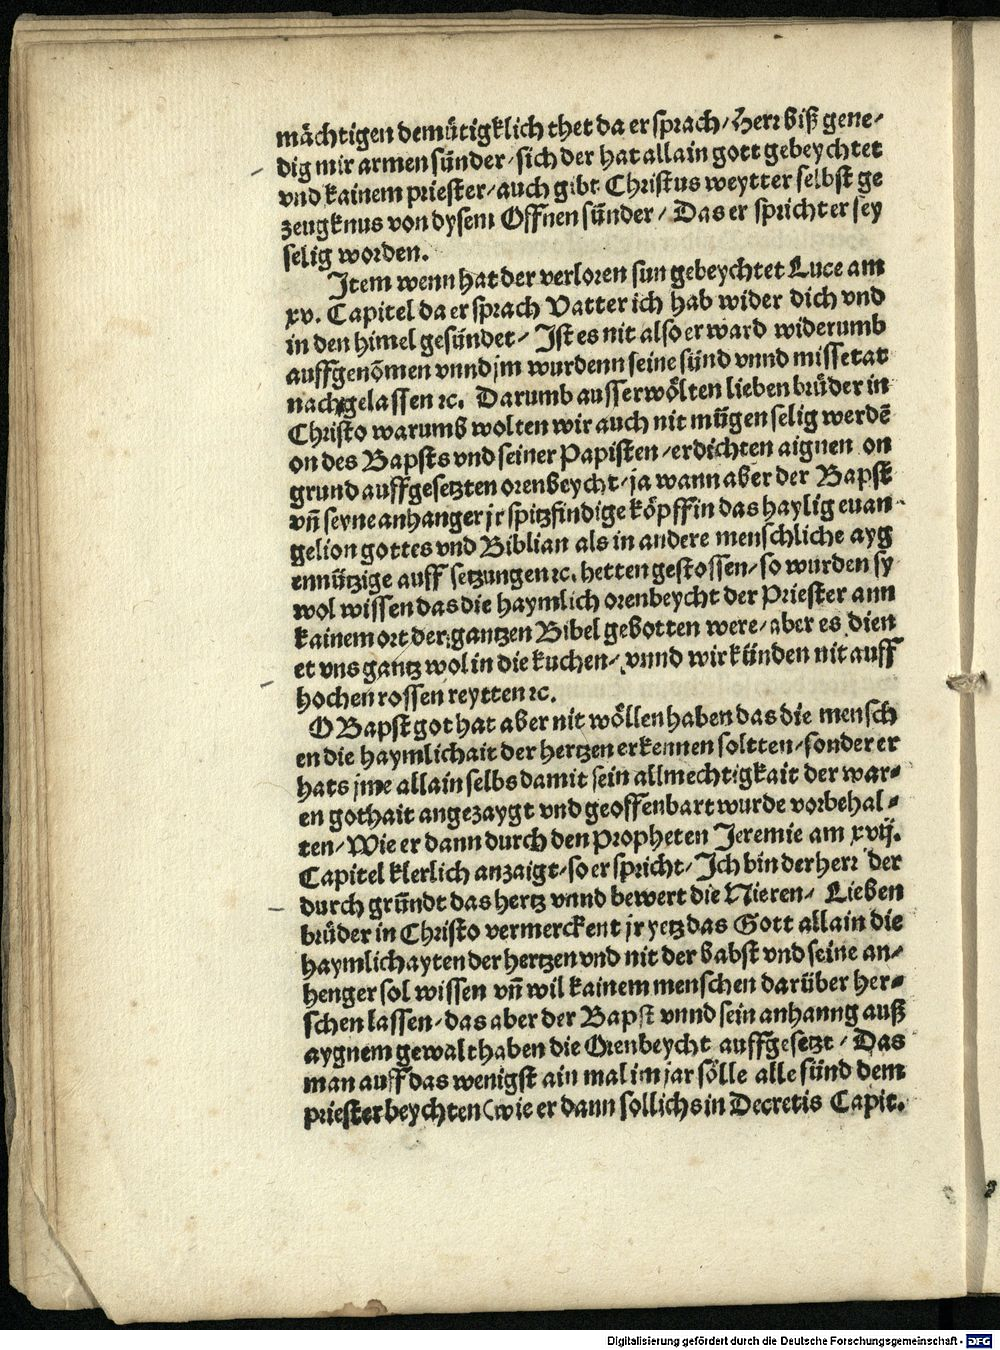 mächtigen demütigklich thet da er sprach / Herr biß gene-
dig mir armen sünder / sich der hat allain gott gebeychtet
vnd kainem priester / auch gibt Christus weytter selbst ge
zeugknus von dysem Offnen sünder / Das er spricht er sey
selig worden.
Item wenn hat der verloren sun gebeychtet Luce am
xv. Capitel da er sprach Vatter ich hab wider dich vnd
in den himel gesündet / Ist es nit also er ward widerumb
auffgenōmen vnnd jm wurdenn seine sünd vnnd missetat
nachgelassen ꝛc. Darumb ausserwölten lieben brüder in
Christo warumb wolten wir auch nit mügen selig werdē
on des Bapsts vnd seiner Papisten / erdichten aignen on
grund auffgesetzten orenbeycht / ja wann aber der Bapst
vn̄ seyne anhanger jr spitzfindige köpff in das haylig euan-
gelion gottes vnd Biblian als in andere menschliche ayg
ennützige auff setzungen ꝛc. hetten gestossen / so wurden sy
wol wissen das die haymlich orenbeycht der Priester ann
kainem ort der gantzen Bibel gebotten were / aber es dien
et vns gantz wol in die kuchen / vnnd wir künden nit auff
hochen rossen reytten ꝛc.
O Bapst got hat aber nit wöllen haben das die mensch
en die haymlichait der hertzen erkennen soltten / sonder er
hats jme allain selbs damit sein allmechtigkait der war-
en gothait angezaygt vnd geoffenbart wurde vorbehal-
ten / Wie er dann durch den Propheten Jeremie am xvij.
Capitel klerlich anzaigt / so er spricht / Ich bin der herr der
durch gründt das hertz vnnd bewert die Nieren / Lieben
brüder in Christo vermerckent jr yetz das Gott allain die
haymlichayten der hertzen vnd nit der babst vnd seine an-
henger sol wissen vn̄ wil kainem menschen darüber her-
schen lassen / das aber der Bapst vnnd sein anhanng auß
aygnem gewalt haben die Orenbeycht auffgesetzt / Das
man auff das wenigst ain mal im jar sölle alle sünd dem
priester beychten (wie er dann sollichs in Decretis Capit.
Digitalisierung gefördert durch die Deutsche Forschungsgemeinschaft - DFG